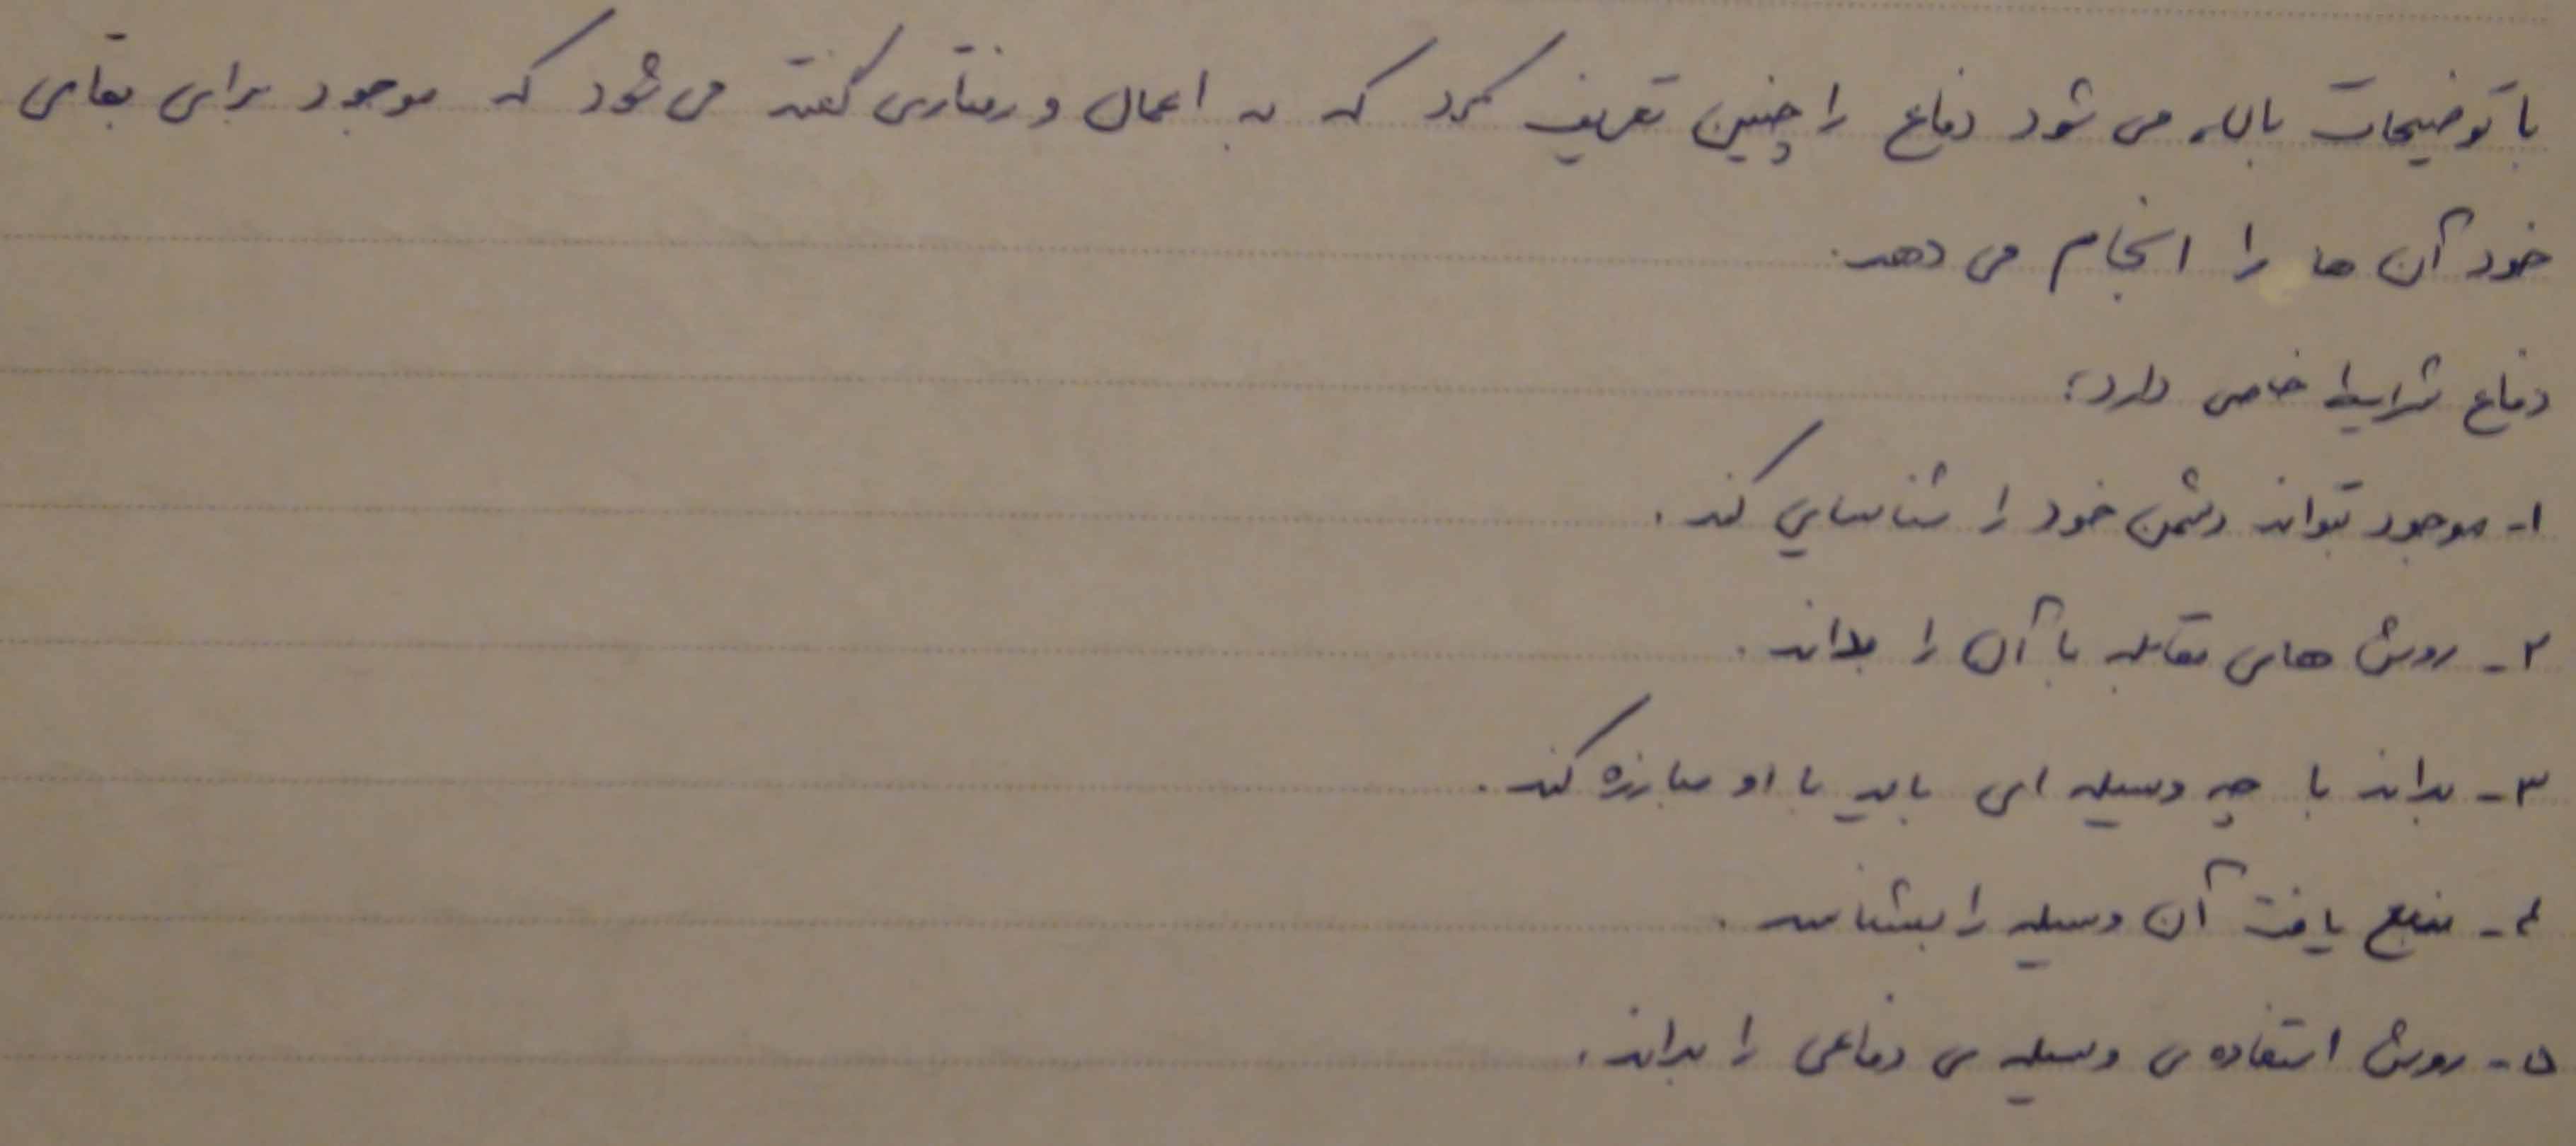 با توضیحات بالا، می شود دفاع را چنین تعریف کرد که به اعمال و رفتاری گفته می شود که موجود برای بقای
خود آن ها را انجام می دهد.
دفاع شرایط خاصی دارد:
۱- موجود بتواند دشمن خود را شناسایی کند.
۲- روش های مقابله با آن را بداند.
۳- بداند با چه وسیله ای باید با او مبارزه کند.
۴- منبع یافت آن وسیله را بشناسد.
۵- روش استفاده ی وسیله ی دفاعی را بداند.